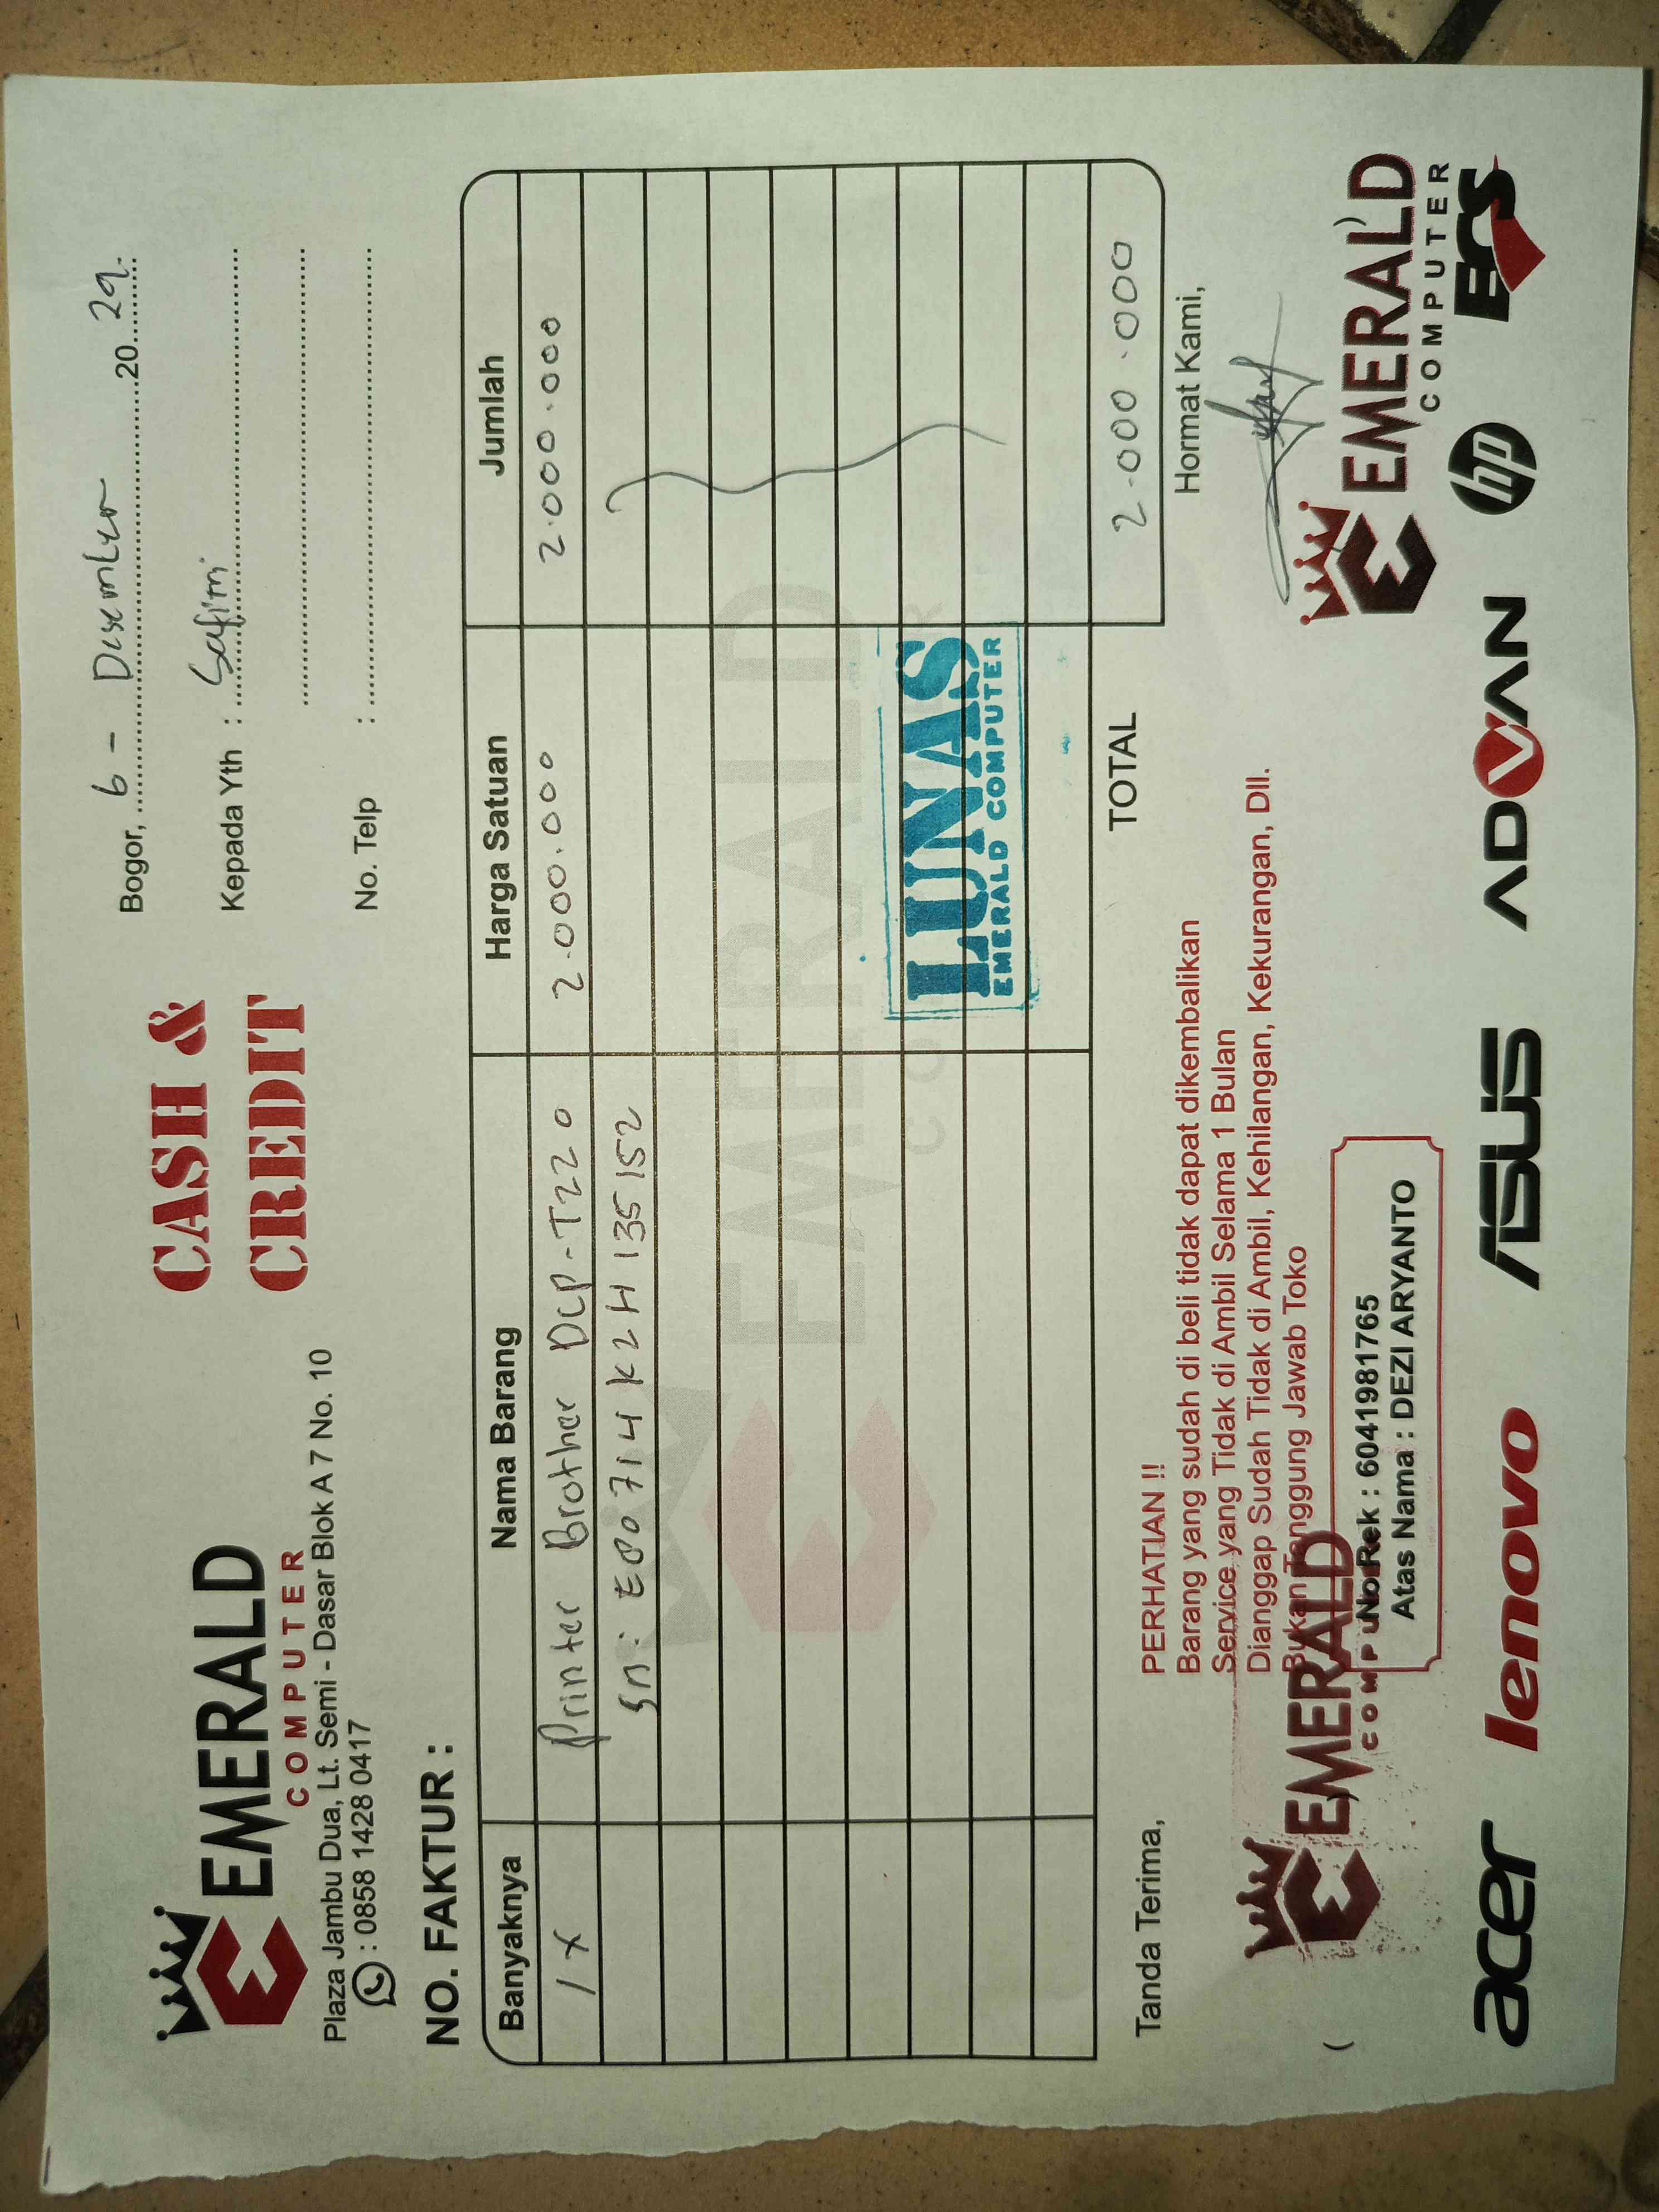 EMERALD
COMPUTER
Plaza Jambu Dua, Lt. Semi - Dasar Blok A 7 No. 10
: 0858 1428 0417
CASH &
CREDIT
Bogor, 6 - Desember 20 24.
Kepada Yth :
No. Telp :
NO. FAKTUR :
Banyaknya Nama Barang Harga Satuan Jumlah
1 x Printer Brother DCP-T220 2.000.000 2.000.000
Sn: E80714K2H135152
EMERALD
COMPUTER
LUNAS
EMERALD COMPUTER
TOTAL 2.000.000
Tanda Terima,
PERHATIAN !!
Barang yang sudah di beli tidak dapat dikembalikan
Service yang Tidak di Ambil Selama 1 Bulan
Dianggap Sudah Tidak di Ambil, Kehilangan, Kekurangan, Dll.
Bukan Tanggung Jawab Toko
Hormat Kami,
EMERALD
COMPU
No Rek : 6041981765
Atas Nama : DEZI ARYANTO
EMERALD
COMPUTER
acer lenovo ASUS ADVAN hp ECS